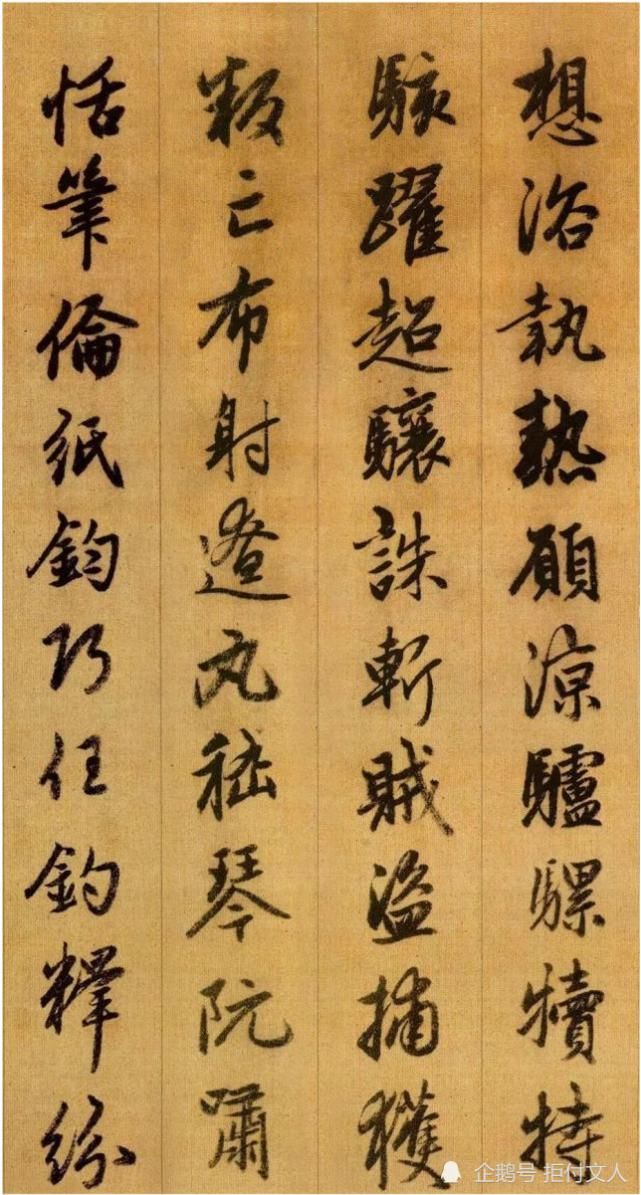 想浴執熱願涼驢騾犢特
駭躍超驤誅斬賊盜捕獲
叛亡布射遼丸嵇琴阮嘯
恬筆倫紙鈞巧任釣釋紛
企鹅号 拒付文人